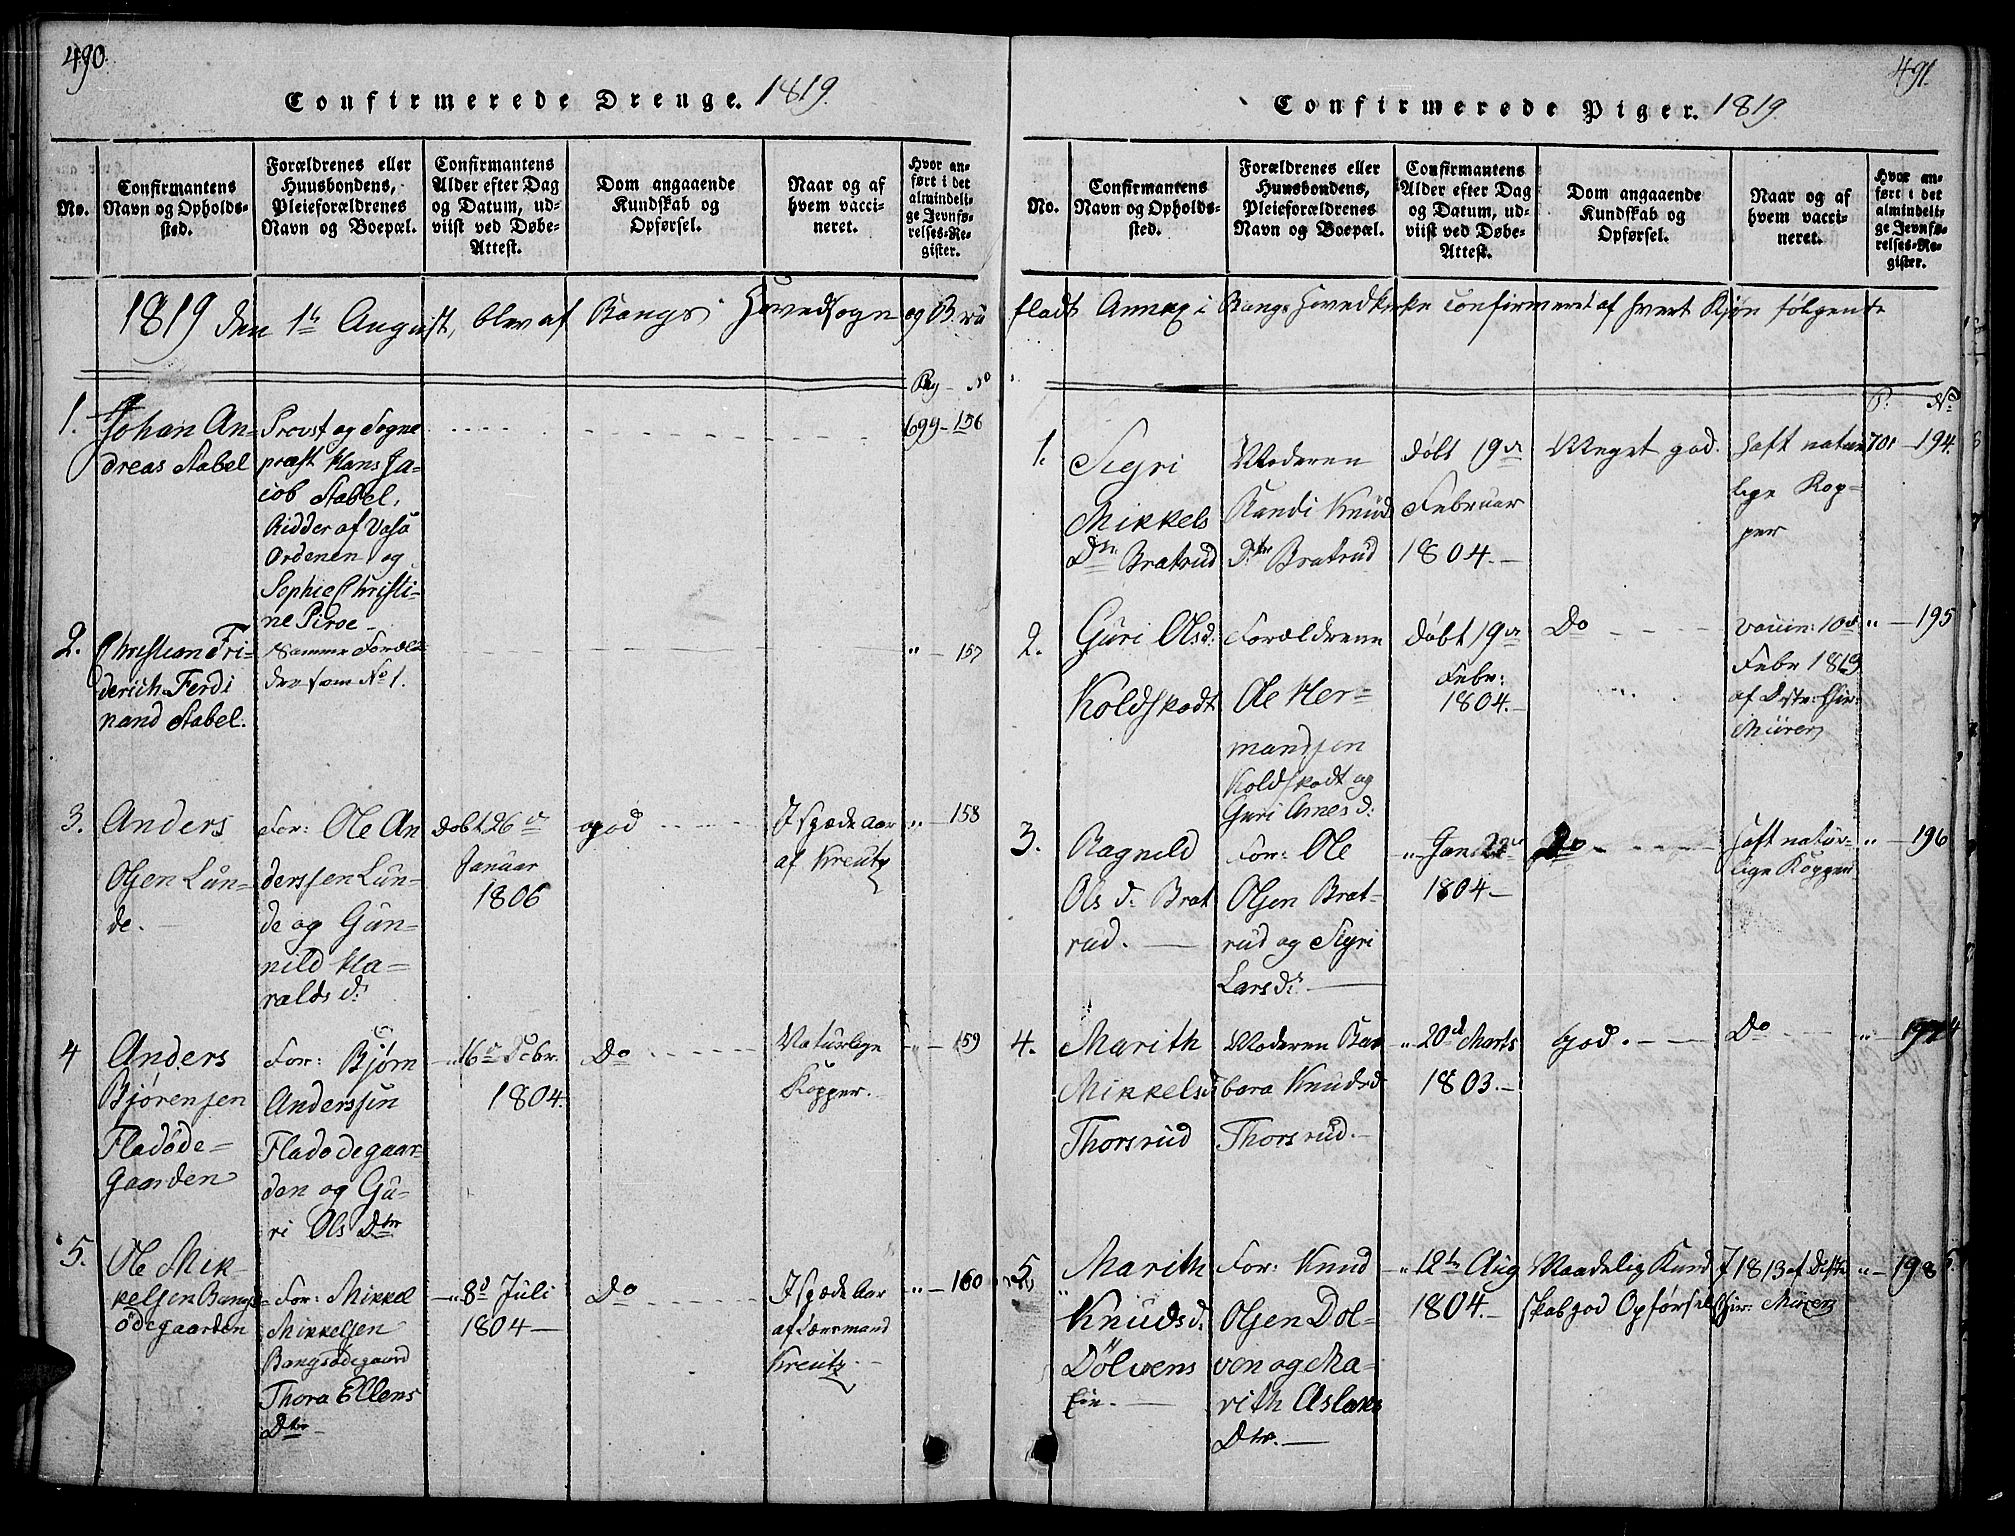 490.
Confirmerede Drenge. 1819.
No.
Confirmantens
Navn og Opholds-
sted.
Forældrenes eller
Huusbondens,
Pleieforældrenes
Navn og Boepæl.
Confirmantens
Alder efter Dag
og Datum, ud-
viist ved Døbe-
Attest.
Dom angaaende
Kundskab og
Opførsel.
Naar og af
hvem vacci-
neret.
Hvor an-
ført i det
almindeli-
ge Jevnfø-
relses-Re-
gister.
1819 den 1te August, blev af Bangs Hovedsogn og Bru
Pag - No
1.
Johan An-
dreas Stabel
Provst og Sogne
præst Hans Ja-
cob Stabel,
Ridder af Vasa
Ordenen og
Sophie Christi-
ne Piroe
699 - 156
2.
Christian Fri-
derich Ferdi
nand Stabel.
Samme Foræl-
dre som No 1.
" - 157
3.
Anders
Olsen Lun-
de. -
For: Ole An
derssen Lun-
de og Gun-
nild Ha-
ralds d:
Døbt 26de
Januar
1806
god
I spæde Aar
af Kreutz
" - 158
4
Anders
Bjørensen
Fladøde-
gaarden
For: Bjørn
Anderssen
Fladødegaar-
den og Gu-
ri Ols Dtr
" 16de Febr.
1804.
Do
Naturlige
Kopper.
" - 159
5.
Ole Mik-
kelsen Bangs
ødegaarden
For: Mikkel
Mikkelsen
Bangsødegaard
Thora Ellens
Dtr
" 8d Juli
1804 -
Do
I spæde Aar
af Lensmand
Kreutz. -
" - 160
491.
Confirmerede Piger. 1819.
No.
Confirmantens
Navn og Opholds-
sted.
Forældrenes eller
Huusbondens,
Pleieforældrenes
Navn og Boepæl.
Confirmantens
Alder efter Dag
og Datum, ud-
viist ved Døbe-
Attest.
Dom angaaende
Kundskab og
Opførsel.
Naar og af
hvem vacci-
neret.
Hvor an-
ført i det
almindeli-
ge Jevnfø-
relses-Re-
gister.
fladt Annex i Bangs Hovedkirke confirmeret af hvert Kjøn følgende
P. No
1.
Sigri
Mikkels
Dtr Bratrud
Moderen
Randi Knud
Dtr Bratrud
Døbt 19de
Februar
1804. -
Meget god.
Haft natur
lige Kop-
per
701 - 194.
2.
Guri Olsd:
Koldskodt
Forældrene
Ole Her-
mandsen
Koldskodt og
Guri Arnes d:
Døbt 19de
Febr:
1804. -
Do
vaccin: 10d
Febr 1819
af Distr: Chir:
Mürer
" - 195
3.
Ragnild
Ols d: Brat
rud. -
For: Ole
Olsen Brat-
rud og Sigri
Lars d: -
" Jan 22de
1804. -
Do
Haft natur-
lige Kopper
" - 196
4.
Marith
Mikkels d
Thorsrud
Moderen Bar
bara Knudsd
Thorsrud. -
" 20d Marts
1803. -
god. -
Do
5
Marith
Knuds d:
Dölvens
Eie. -
For: Knud
Olsen Dol-
ven og Ma-
rith Aslaks
Dtr. -
" 12te Aug
1804. -
Maadelig Kund
skab god Opførsel
I 1813 af Distr
Chir: Mürer
" - 198